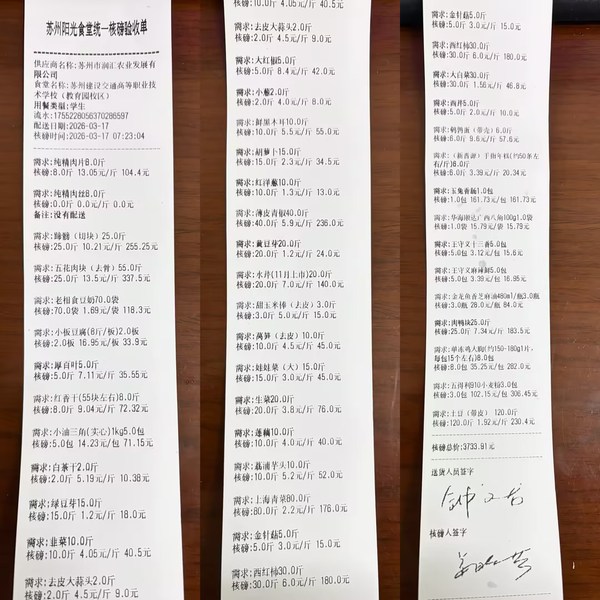 苏州阳光食堂统一核磅验收单
供应商名称:苏州市润汇农业发展有
限公司
食堂名称:苏州建设交通高等职业技
术学校（教育园校区）
用餐类型:学生
流水:1755228056370286597
配送日期:2026-03-17
核磅时间:2026-03-17 07:23:04
需求:纯精肉片8.0斤
核磅:8.0斤 13.05元/斤 104.4元
需求:纯精肉丝8.0斤
核磅:0.0斤 0.0元/斤 0.0元
备注:没有配送
需求:蹄髈（切块）25.0斤
核磅:25.0斤 10.21元/斤 255.25元
需求:五花肉块（去骨）55.0斤
核磅:25.0斤 13.5元/斤 337.5元
需求:老相食豆奶70.0袋
核磅:70.0袋 1.69元/袋 118.3元
需求:小板豆腐(8斤/板)2.0板
核磅:2.0板 16.95元/板 33.9元
需求:厚百叶5.0斤
核磅:5.0斤 7.11元/斤 35.55元
需求:红香干(55块左右)8.0斤
核磅:8.0斤 9.04元/斤 72.32元
需求:小油三角(实心)1kg5.0包
核磅:5.0包 14.23元/包 71.15元
需求:白茶干2.0斤
核磅:2.0斤 5.19元/斤 10.38元
需求:绿豆芽15.0斤
核磅:15.0斤 1.2元/斤 18.0元
需求:韭菜10.0斤
核磅:10.0斤 4.05元/斤 40.5元
需求:去皮大蒜头2.0斤
核磅:2.0斤 4.5元/斤 9.0元
核磅:10.0斤 4.05元/斤 40.5元
需求:去皮大蒜头2.0斤
核磅:2.0斤 4.5元/斤 9.0元
需求:大红椒5.0斤
核磅:5.0斤 8.4元/斤 42.0元
需求:小葱2.0斤
核磅:2.0斤 4.0元/斤 8.0元
需求:鲜黑木耳10.0斤
核磅:10.0斤 5.5元/斤 55.0元
需求:胡萝卜15.0斤
核磅:15.0斤 2.3元/斤 34.5元
需求:红洋葱10.0斤
核磅:10.0斤 1.3元/斤 13.0元
需求:薄皮青椒40.0斤
核磅:40.0斤 5.9元/斤 236.0元
需求:黄豆芽20.0斤
核磅:20.0斤 1.2元/斤 24.0元
需求:水芹(11月上市)20.0斤
核磅:20.0斤 7.0元/斤 140.0元
需求:甜玉米棒（去皮）3.0斤
核磅:3.0斤 5.0元/斤 15.0元
需求:莴笋（去皮）10.0斤
核磅:10.0斤 4.5元/斤 45.0元
需求:娃娃菜（大）15.0斤
核磅:15.0斤 3.0元/斤 45.0元
需求:生菜20.0斤
核磅:20.0斤 3.8元/斤 76.0元
需求:莲藕10.0斤
核磅:10.0斤 4.0元/斤 40.0元
需求:荔浦芋头10.0斤
核磅:10.0斤 5.2元/斤 52.0元
需求:上海青菜80.0斤
核磅:80.0斤 2.2元/斤 176.0元
需求:金针菇5.0斤
核磅:5.0斤 3.0元/斤 15.0元
需求:西红柿30.0斤
核磅:30.0斤 6.0元/斤 180.0元
需求:金针菇5.0斤
核磅:5.0斤 3.0元/斤 15.0元
需求:西红柿30.0斤
核磅:30.0斤 6.0元/斤 180.0元
需求:大白菜30.0斤
核磅:30.0斤 1.56元/斤 46.8元
需求:西芹5.0斤
核磅:5.0斤 2.0元/斤 10.0元
需求:鹌鹑蛋（带壳）6.0斤
核磅:6.0斤 9.6元/斤 57.6元
需求:手指年糕(约50条左
右/斤)6.0斤
核磅:6.0斤 3.39元/斤 20.34元
需求:玉兔香肠1.0包
核磅:1.0包 161.73元/包 161.73元
需求:广西八角100g1.0袋
核磅:1.0袋 15.79元/袋 15.79元
需求:王守义十三香5.0包
核磅:5.0包 3.12元/包 15.6元
需求:王守义麻辣鲜5.0包
核磅:5.0包 3.39元/包 16.95元
需求:金龙鱼香芝麻油480ml/瓶3.0瓶
核磅:3.0瓶 28.0元/瓶 84.0元
需求:肉鸭块25.0斤
核磅:25.0斤 7.34元/斤 183.5元
需求:单冻鸡大胸(约150-180g1片,
每包15个左右)8.0包
核磅:8.0包 35.25元/包 282.0元
需求:五得利910小麦粉3.0包
核磅:3.0包 102.15元/包 306.45元
需求:土豆（带皮）120.0斤
核磅:120.0斤 1.92元/斤 230.4元
核磅总价:3733.91元
送货人员签字
核磅人签字